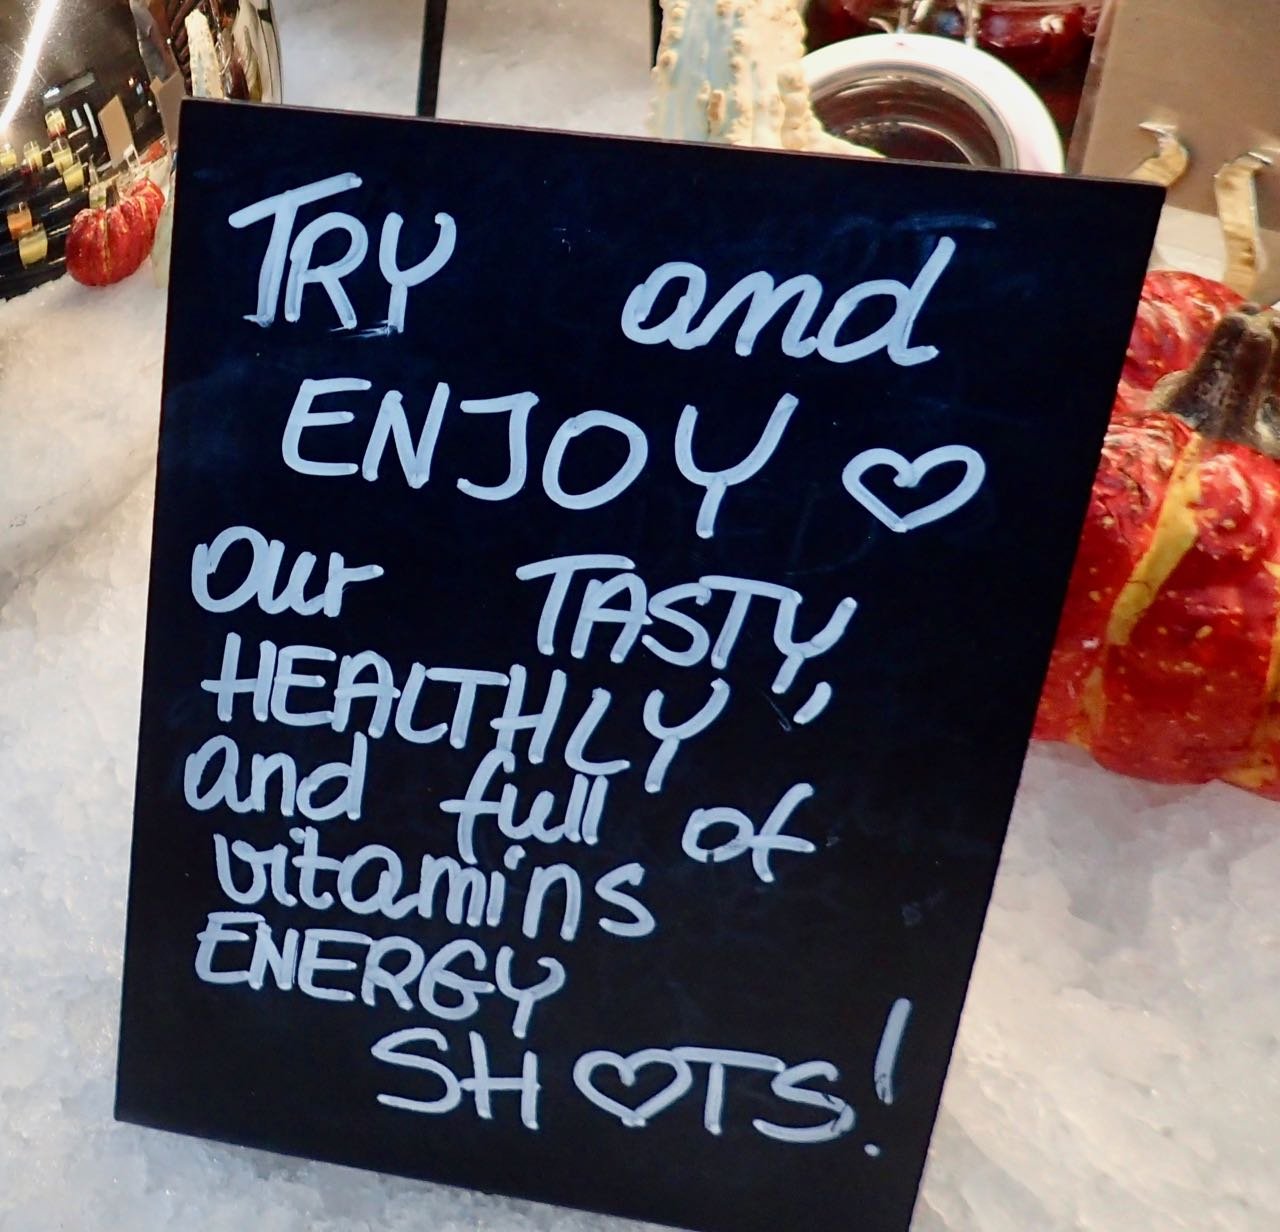 TRY and
ENJOY ♡
our TASTY,
HEALTHLY,
and full of
vitamins
ENERGY
SH♡TS!